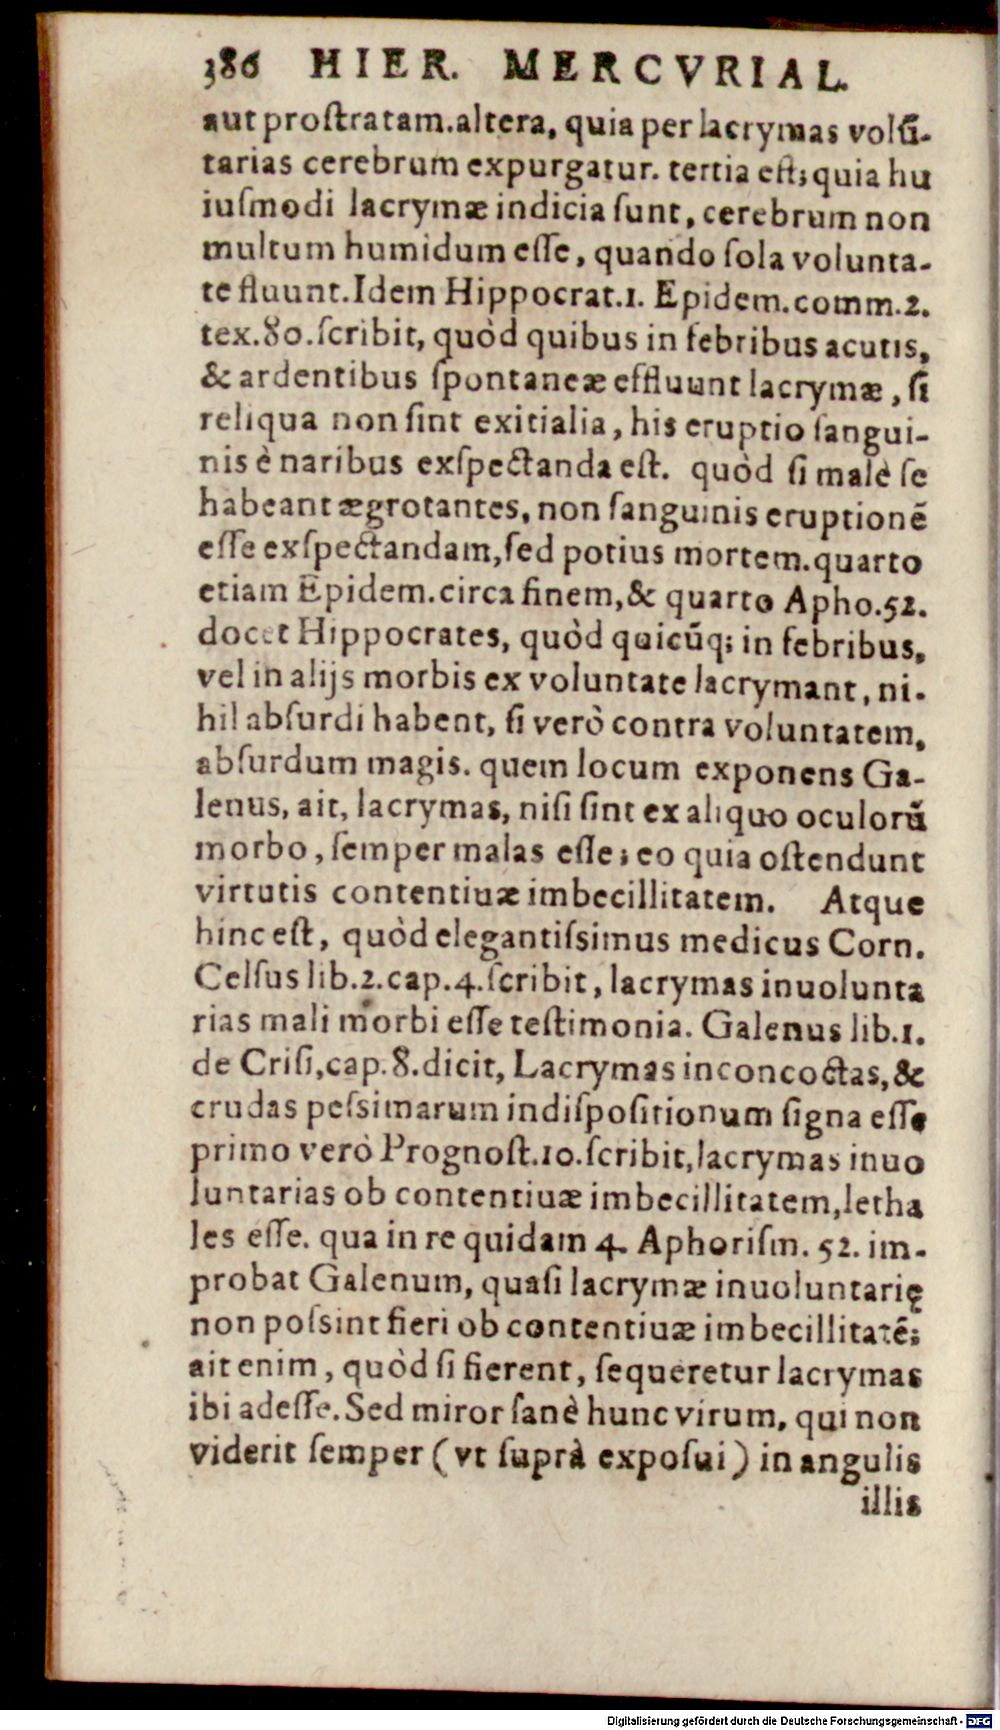 386 HIER. MERCVRIAL.
aut proſtratam.altera, quia per lacrymas volũ-
tarias cerebrum expurgatur. tertia eſt; quia hu
iuſmodi lacrymæ indicia ſunt, cerebrum non
multum humidum eſſe, quando ſola volunta-
te fluunt.Idem Hippocrat.1. Epidem.comm.2.
tex.80.ſcribit, quòd quibus in febribus acutis,
& ardentibus ſpontaneæ effluunt lacrymæ, ſi
reliqua non ſint exitialia, his eruptio ſangui-
nis è naribus exſpectanda eſt. quòd ſi malè ſe
habeant ægrotantes, non ſanguinis eruptionẽ
eſſe exſpectandam,ſed potius mortem.quarto
etiam Epidem.circa finem,& quarto Apho.52.
docet Hippocrates, quòd quicũq; in febribus,
vel in alijs morbis ex voluntate lacrymant, ni-
hil abſurdi habent, ſi verò contra voluntatem,
abſurdum magis. quem locum exponens Ga-
lenus, ait, lacrymas, niſi ſint ex aliquo oculorũ
morbo, ſemper malas eſſe; eo quia oſtendunt
virtutis contentiuæ imbecillitatem. Atque
hinc eſt, quòd elegantiſsimus medicus Corn.
Celſus lib.2.cap.4.ſcribit, lacrymas inuolunta
rias mali morbi eſſe teſtimonia. Galenus lib.1.
de Criſi,cap.8.dicit, Lacrymas inconcoctas,&
crudas peſsimarum indiſpoſitionum ſigna eſſe
primo verò Prognoſt.10.ſcribit,lacrymas inuo
luntarias ob contentiuæ imbecillitatem,letha
les eſſe. qua in re quidam 4. Aphoriſm. 52. im-
probat Galenum, quaſi lacrymæ inuoluntarię
non poſsint fieri ob contentiuæ imbecillitatẽ;
ait enim, quòd ſi fierent, ſequeretur lacrymas
ibi adeſſe.Sed miror ſanè hunc virum, qui non
viderit ſemper (vt ſuprà expoſui) in angulis
illis
Digitalisierung gefördert durch die Deutsche Forschungsgemeinschaft - DFG